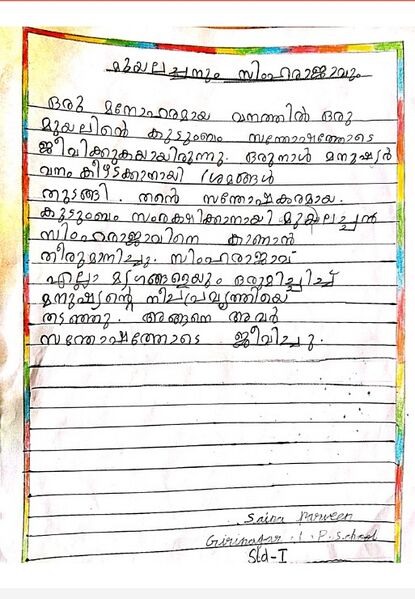 മുയലച്ചനും സിംഹരാജാവും
ഒരു മനോഹരമായ വനത്തിൽ ഒരു
മുയലിന്റെ കുടുംബം സന്തോഷത്തോടെ
ജീവിക്കുകയായിരുന്നു. ഒരുനാൾ മനുഷ്യർ
വനം കീഴടക്കാനായി ശ്രമങ്ങൾ
തുടങ്ങി. തന്റെ സന്തോഷകരമായ
കുടുംബം സംരക്ഷിക്കാനായി മുയലച്ചൻ
സിംഹരാജാവിനെ കാണാൻ
തീരുമാനിച്ചു. സിംഹരാജാവ്
എല്ലാ മൃഗങ്ങളെയും ഒരുമിച്ചിച്ച്
മനുഷ്യന്റെ നീചപ്രവൃത്തിയെ
തടഞ്ഞു. അങ്ങനെ അവർ
സന്തോഷത്തോടെ ജീവിച്ചു.
Saina Parveen
Girinagar L.P.School
Std-I